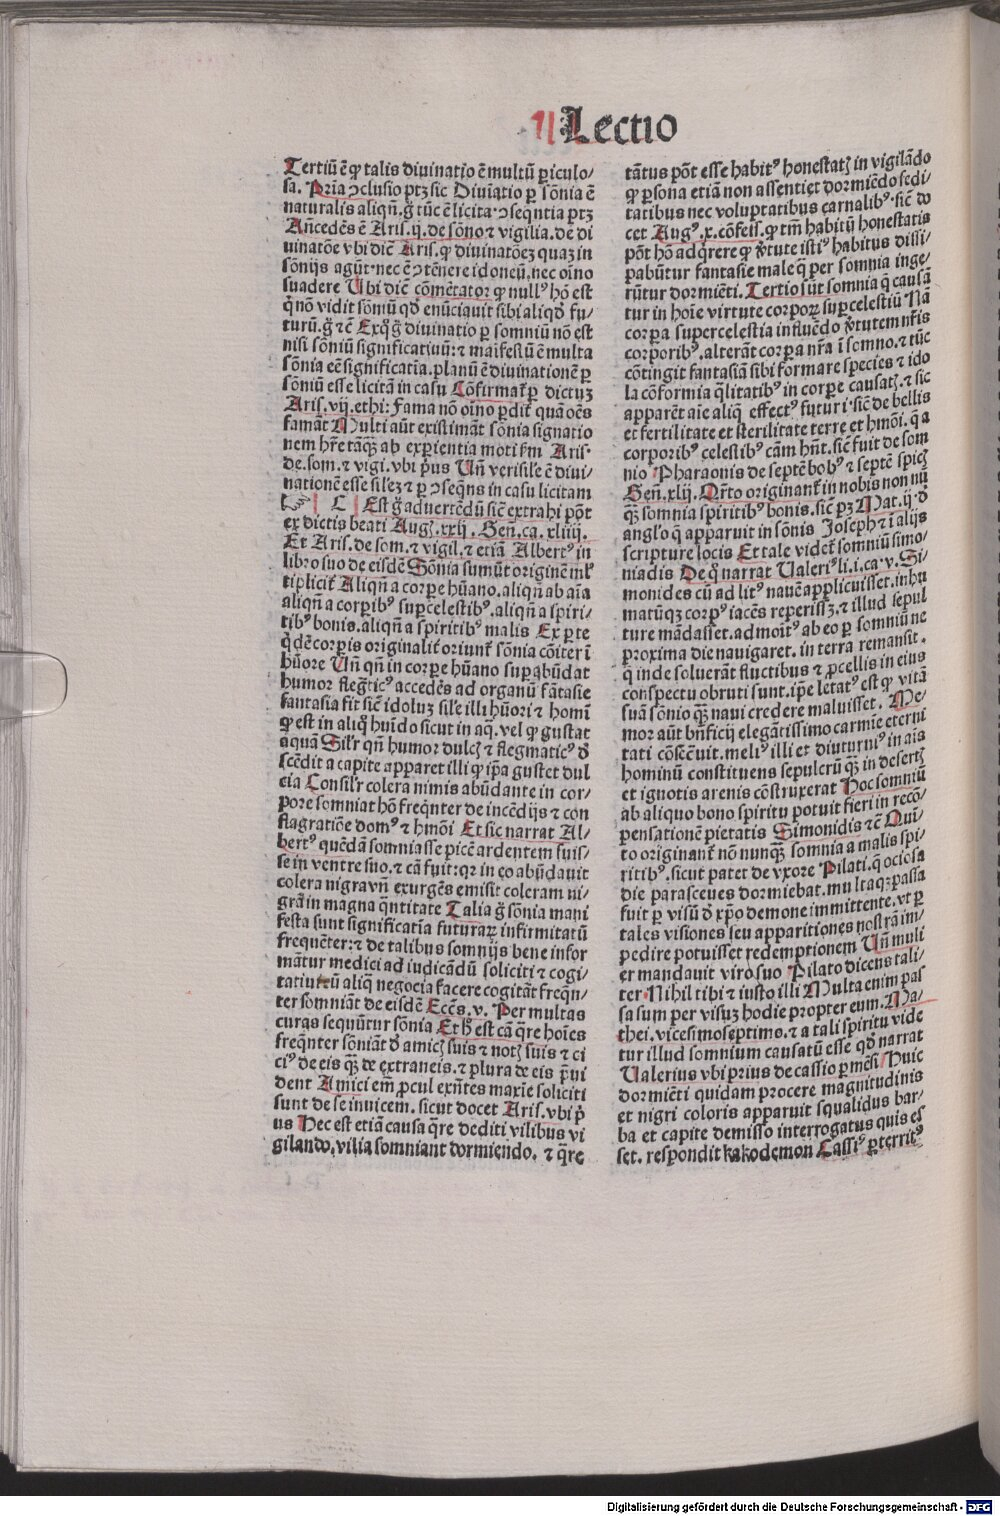 Lectio
Tertiū ē ꝙ talis diuinatio ē multū ꝑiculo/
sa. Pria ↄclusio ptꝫ sic Diuiatio ꝑ sōnia ē
naturalis aliqñ. g̃ tūc ē licita ↄseqntia ptꝫ
Ancedēs ē Aris. ij. de sōno ⁊ vigilia. de di
uinatōe vbi diē Aris. ꝙ diuinatōeꝫ quaꝫ in
sōnijs agūt. nec ē ↄtēnere idoneū. nec oīno
suadere Ubi diē cōmētator ꝙ nullꝰ hō est
q̇ nō vidit sōniū qđ enūciauit sibi aliqđ fu/
turū. g̃ ⁊c̄ Ex q̇ g̃ diuinatio ꝑ somniū nō est
nisi sōniū significatiuū: ⁊ maīfestū ē multa
sōnia eē significatia. planū ē diuinationē ꝑ
sōniū esse licitā in casu Cōfirmat̃ ꝑ dictuꝫ
Aris. vij. ethi: Fama nō oīno ꝑdit̃ quā oēs
famāt Multi aūt existimāt sōnia signatio
nem hr̄e tāqꝫ ab experientia moti k̃m Aris.
de. som. ⁊ vigi. vbi pͥus Uñ verisile ē diui/
nationē esse sileꝫ ⁊ ꝑ ↄseqñs in casu licitam
C Est g̃ aduertēdū sic̄ extrahi pōt
ex dictis beati Augꝫ. xxij. Señ. ca. xliiij.
Et Aris. de som. ⁊ vigil. ⁊ etiā Albertꝰ in
libro suo de eisdē Sōnia sumūt originē ml̃
tiplicit̃ Aliqñ a corpe hūano. aliqñ ab aīa
aliqñ a corpibꝰ suꝑcelestibꝰ. aliqñ a spiri/
tibꝰ bonis. aliqñ a spiritibꝰ malis Ex ꝑte
q̇dē corpis originalit̃ oriunt̃ sōnia cōiter ī
hūore Uñ qñ in corpe hūano suꝑabūdat
humor flegm̃ticꝰ accedēs ad organū fātasie
fantasia fit sic̄ idoluꝫ sile illi hūori ⁊ homī
ꝙ est in aliq̊ huīdo sicut in aq̃. vel ꝙ gustat
aquā Silr̄ qñ humor dulcꝫ ⁊ flegmaticꝰ đ
scēdit a capite apparet illi ꝙ ip̄a gustet dul
cia Consilr̄ colera nimis abūdante in cor/
pore somniat hō freq̄nter de incēdijs ⁊ con
flagratiōe domꝰ ⁊ hm̄oi Et sic narrat Al/
bertꝰ quēdā somniasse picē ardentem fuis/
se in ventre suo. ⁊ cā fuit: qꝛ in eo abūdauit
colera nigra vñ exurgēs emisit coleram ni/
grā in magna q̄ntitate Talia g̃ sōnia mani
festa sunt significatīa futuraꝝ infirmitatū
frequēter: ⁊ de talibus somnijs bene infor
māntur medici ad iudicādū soliciti ⁊ cogi/
tatiui cū aliq̄ negocia facere cogitāt freq̄n/
ter somniāt de eisdē Eccēs. v. Per multas
curas sequūtur sōnia Et hꝰ est cā q̄re hoīes
freq̄nter sōniāt đ amicꝫ suis ⁊ notꝫ suis ⁊ ci
ciꝰ de eis qꝫ de extraneis. ⁊ plura de eis p̄ui
dent Amici em̄ ꝓcul exñtes maxīe soliciti
sunt de se inuicem. sicut docet Aris. vbi pͥ
us Hec est etiā causa q̄re dediti vilibus vi
gilando, vilia somniant dormiendo. ⁊ q̄re
tātus pōt esse habitꝰ honestatꝫ in vigilādo
ꝙ ꝑsona etiā non assentiet dormiēdo fedi/
tatibus nec voluptatibus carnalibꝰ. sic̄ do
cet Augꝰ. x. cōfess. ꝙ tm̄ habitū honestatis
pōt hō adq̇rere ꝙ v̓tute istiꝰ habitus dissi/
pabūtur fantasie male q̄ ꝑ somnia inge/
rūtur dormiēti. Tertio sūt somnia q̄ causā
tur in hoīe virtute corpoꝝ suꝑcelestiū Nā
corpa supercelestia influēdo v̓tutem nr̄is
corporibꝰ. alterāt corpa nr̄a ī somno. ⁊ tūc
cōtingit fantasiā sibi formare species ⁊ ido
la cōformia q̄litatibꝰ in corpe causatꝫ. ⁊ sic
apparēt aīe aliq̄ effectꝰ futuri. sic̄ de bellis
et fertilitate et sterilitate terre et hm̄oi. q̄ a
corporibꝰ celestibꝰ cām hn̄t. sic̄ fuit de som
nio Pharaonis de septē bobꝰ ⁊ septē spicꝫ
Señ. xlij. Qr̄to originant̃ in nobis non nū
qꝫ somnia spiritibꝰ bonis. sic̄ pꝫ Mat. ij. đ
angl̓o q̄ apparuit in sōnis Joseph ⁊ ī alijs
scripture locis Et tale videt̃ somniū simo/
niadis De q̊ narrat Ualeriꝰ li. i. ca. v. Si/
monides cū ad litꝰ nauē applicuisset. inhu
matūqꝫ corpꝰ iacēs reperissꝫ. ⁊ illud sepul
ture mādasset. admoītꝰ ab eo ꝑ somniū ne
proxima die nauigaret. in terra remansit.
q̇ inde soluerāt fluctibus ⁊ ꝓcellis in eius
conspectu obruti sunt. ip̄e letatꝰ est ꝙ vitā
suā sōnio qꝫ naui credere maluisset. Me/
mor aūt bn̄ficij elegātissimo carmīe eterni
tati cōsēcͥuit. meliꝰ illi et diuturniꝰ in aīs
hominū constituens sepulcrū qꝫ in desertꝫ
et ignotis arenis cōstruxerat Hoc somniū
ab aliquo bono spiritu potuit fieri in recō/
pensationē pietatis Simonidis ⁊c̄ Qui/
to originant̃ nō nunqꝫ somnia a malis spi/
ritibꝰ. sicut patet de vxore Pilati. q̄ ociosa
die parasceues dormiebat. multaqꝫ passa
fuit ꝑ visū đ xp̄o demone immittente. vt ꝑ
tales visiones seu apparitiones nostrā im/
pedire potuisset redemptionem Uñ muli
er mandauit viro suo Pilato dicens tali/
ter. Nihil tibi ⁊ iusto illi Multa enim pas
sa sum per visuꝫ hodie propter eum. Ma/
thei. vicesimoseptimo. ⁊ a tali spiritu vide
tur illud somnium causatū esse qđ narrat
Ualerius vbi prius de cassio pmēsi Huic
dormiēti quidam procere magnitudinis
et nigri coloris apparuit squalidus bar/
ba et capite demisso interrogatus quis es
set. respondit kakodemon Cassiꝰ ꝑterritꝰ
Digitalisierung gefördert durch die Deutsche Forschungsgemeinschaft - DFG